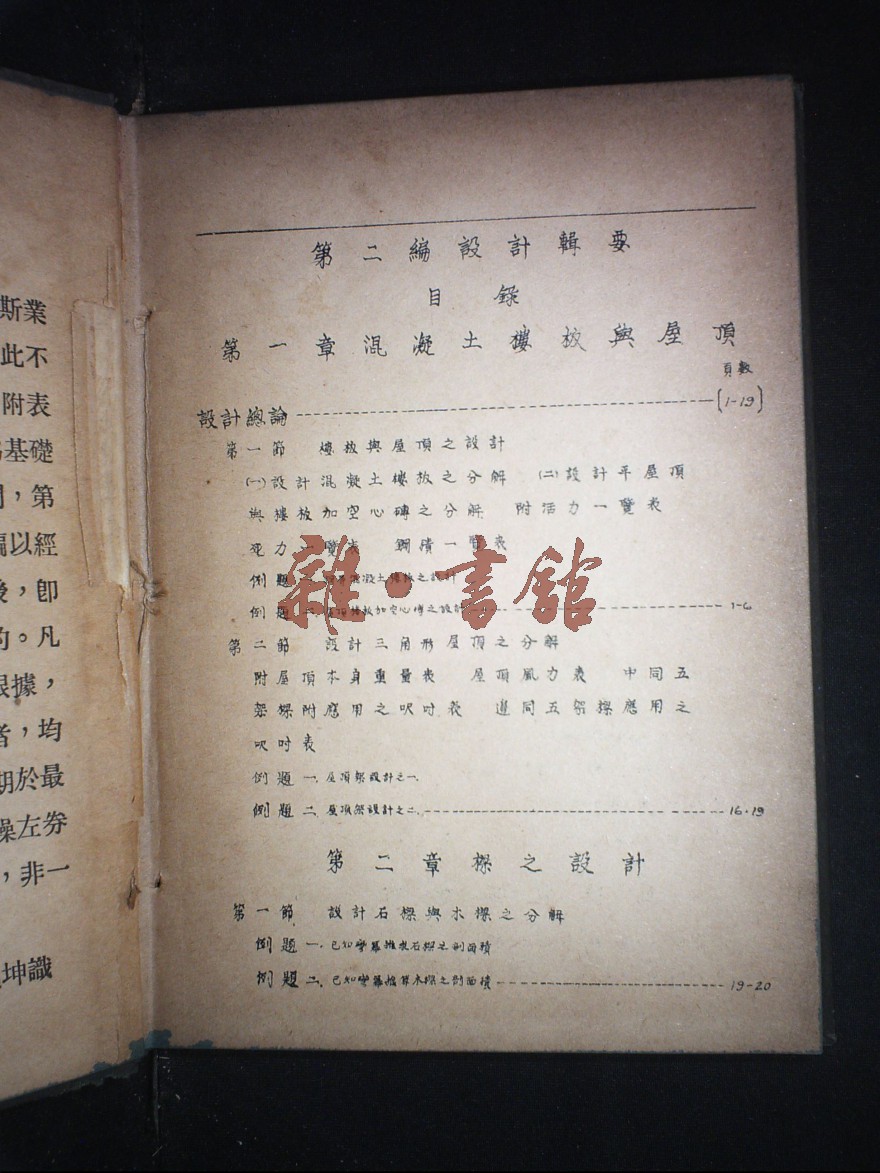 第二編設計輯要
目錄
第一章混凝土樓板與屋頂
頁數
設計總論 (1-19)
第一節 樓板與屋頂之設計
(一)設計混凝土樓板之分解 (二)設計平屋頂
與樓板加空心磚之分解 附活力一覽表
死力 覽表 鋼磺一覽表
例題 混凝土樓板之設計
例題 二. 屋頂樓板加空心磚之設計 1-6
第二節 設計三角形屋頂之分解
附屋頂本身重量表 屋頂風力表 中同五
架樑附應用之呎吋表 邊同五架樑應用之
呎吋表
例題 一. 屋頂架設計之一.
例題 二. 屋頂架設計之二. 16-19
第二章樑之設計
第一節 設計石樑與木樑之分解
例題 一. 已知彎羃推求石樑之剖面積
例題 二. 已知彎羃推算木樑之剖面積 19-20
斯業
此不
附表
基礎
，第
以經
，即
。凡
根據，
，均
期於最
操左券
，非一
坤識
雜·書館